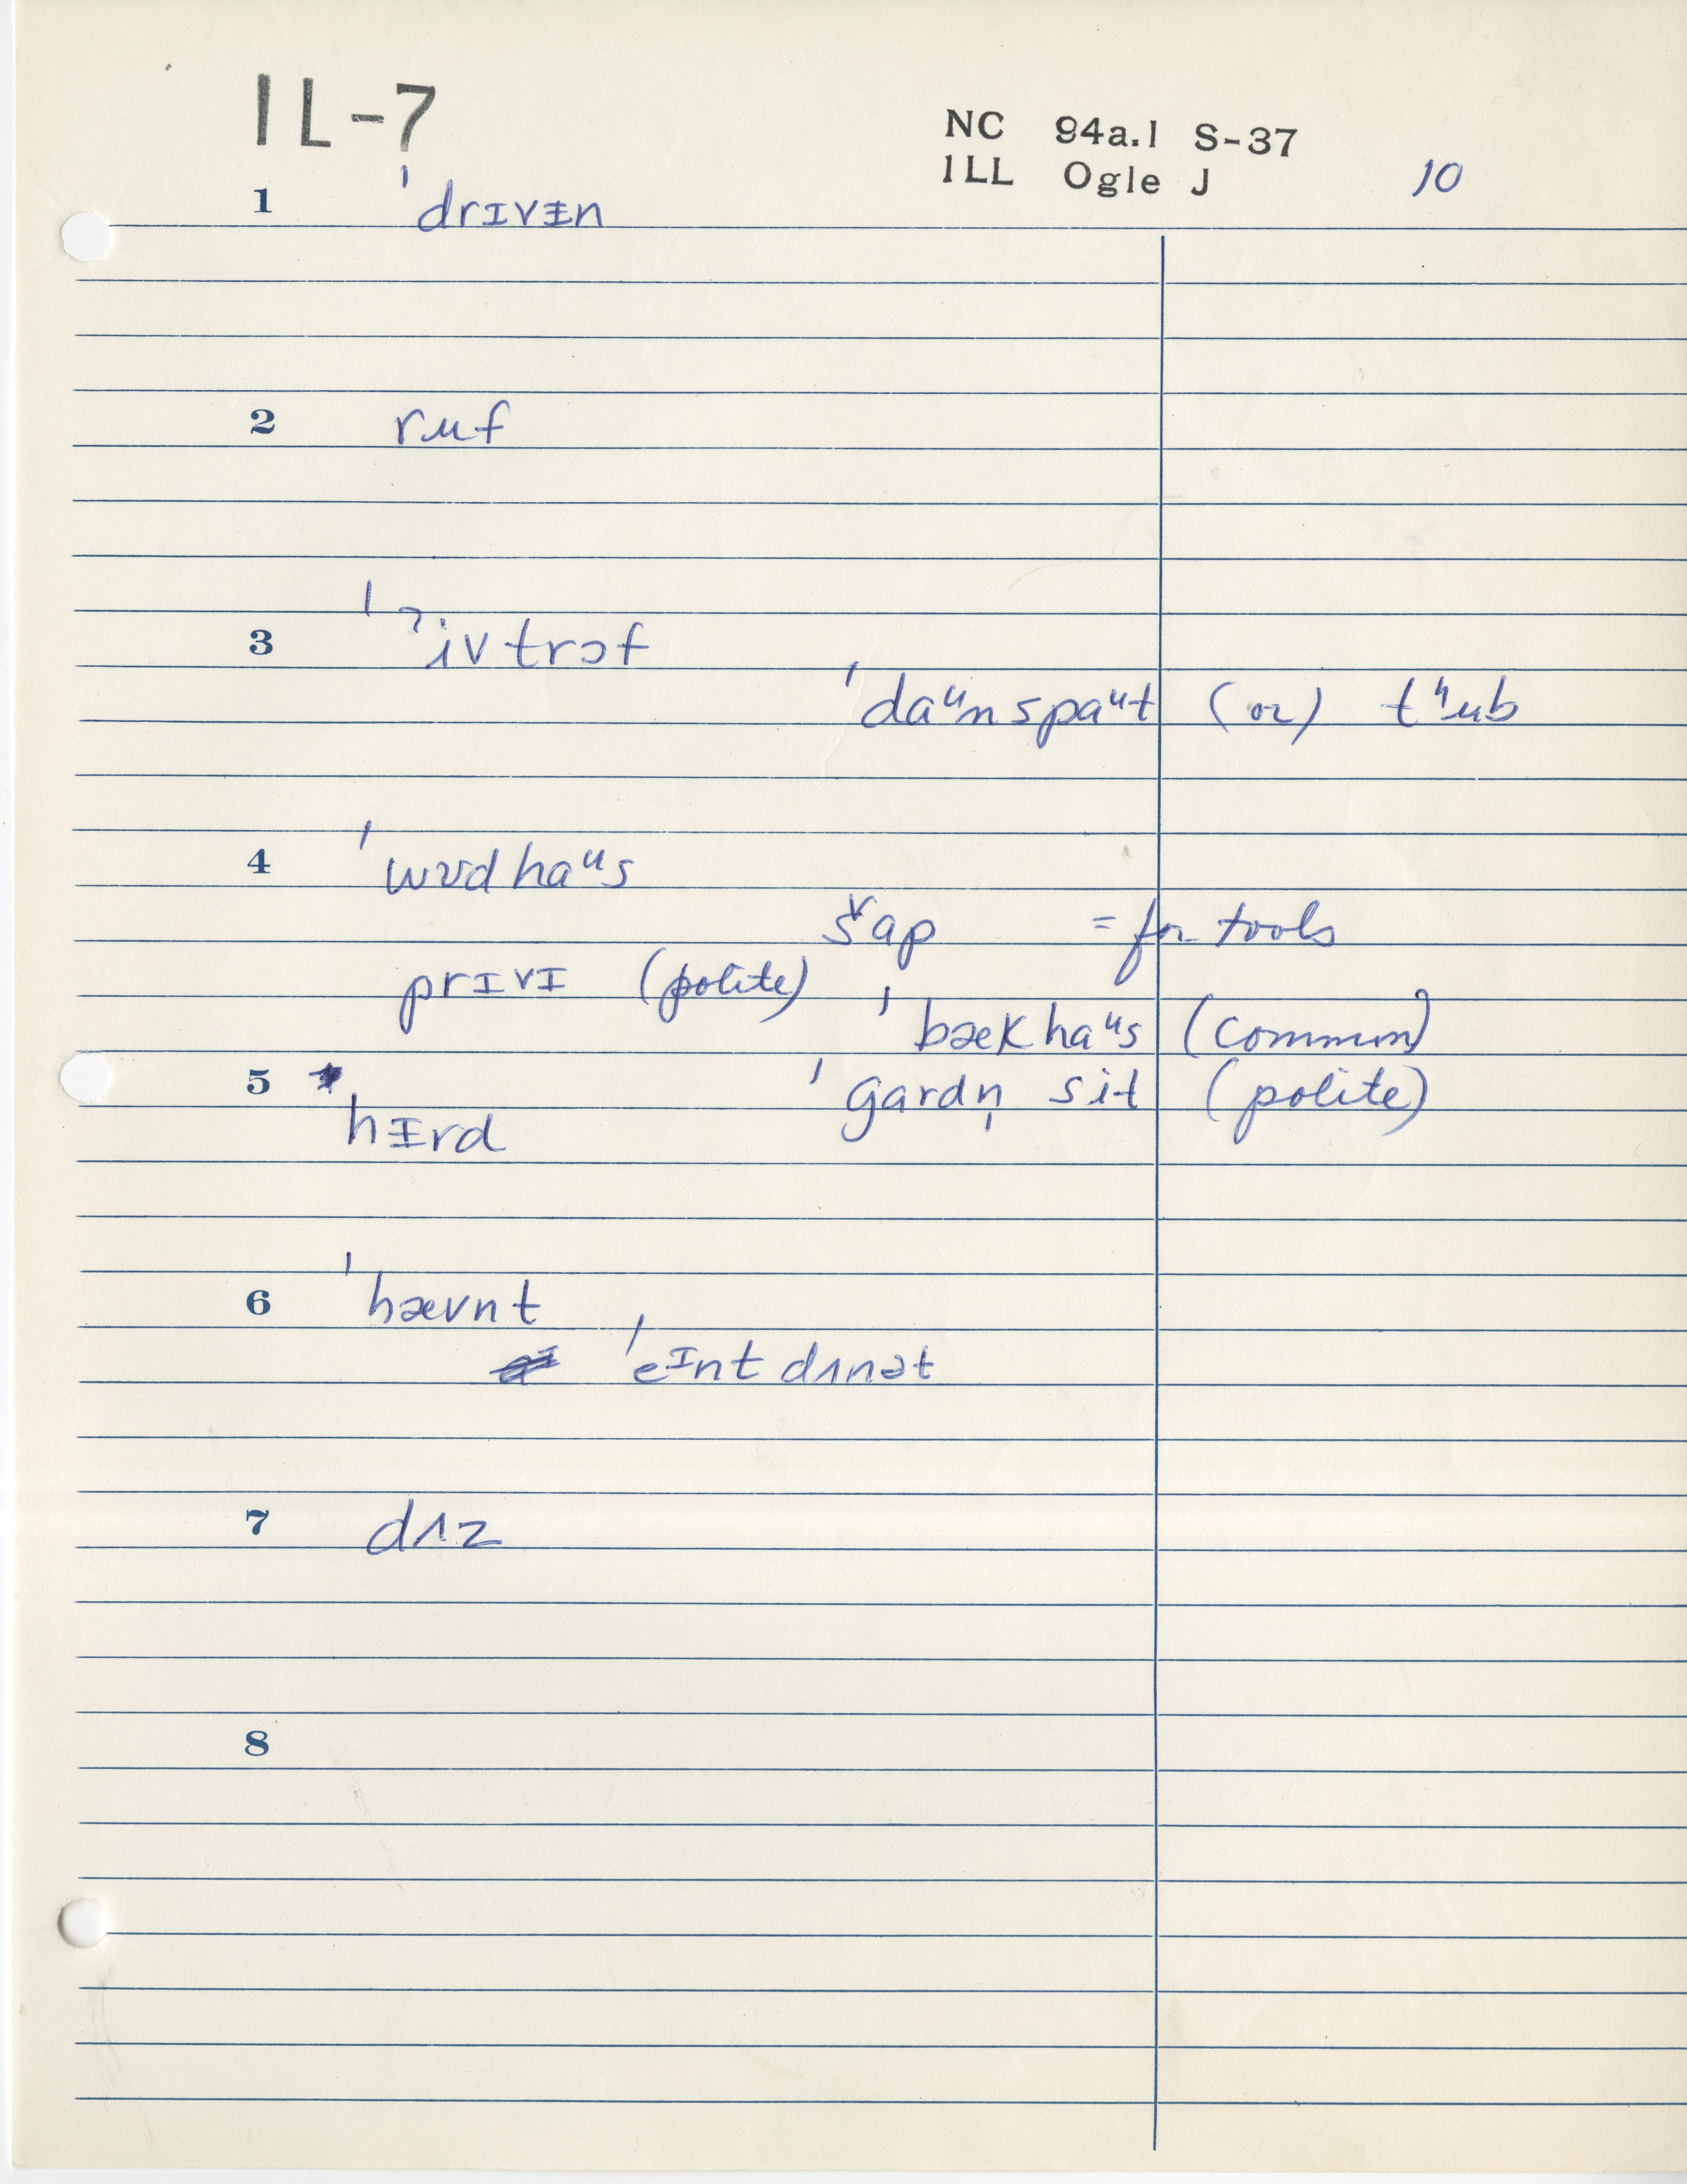 IL-7
NC 94a.1 S-37
ILL Ogle J 10
1 ˈdrɪvᵻn
2 ruf
3 ˈʔivtrɔf
ˈdaᵘnspaᵘt (or) tʰub
4 ˈwʊdhaᵘs
šap = for tools
prɪvɪ (polite)
ˈbækhaᵘs (common)
5 ˈgardn̩ sit (polite)
hᵻrd
6 ˈhævnt
ˈeᶦnt dʌnət
7 dʌz
8